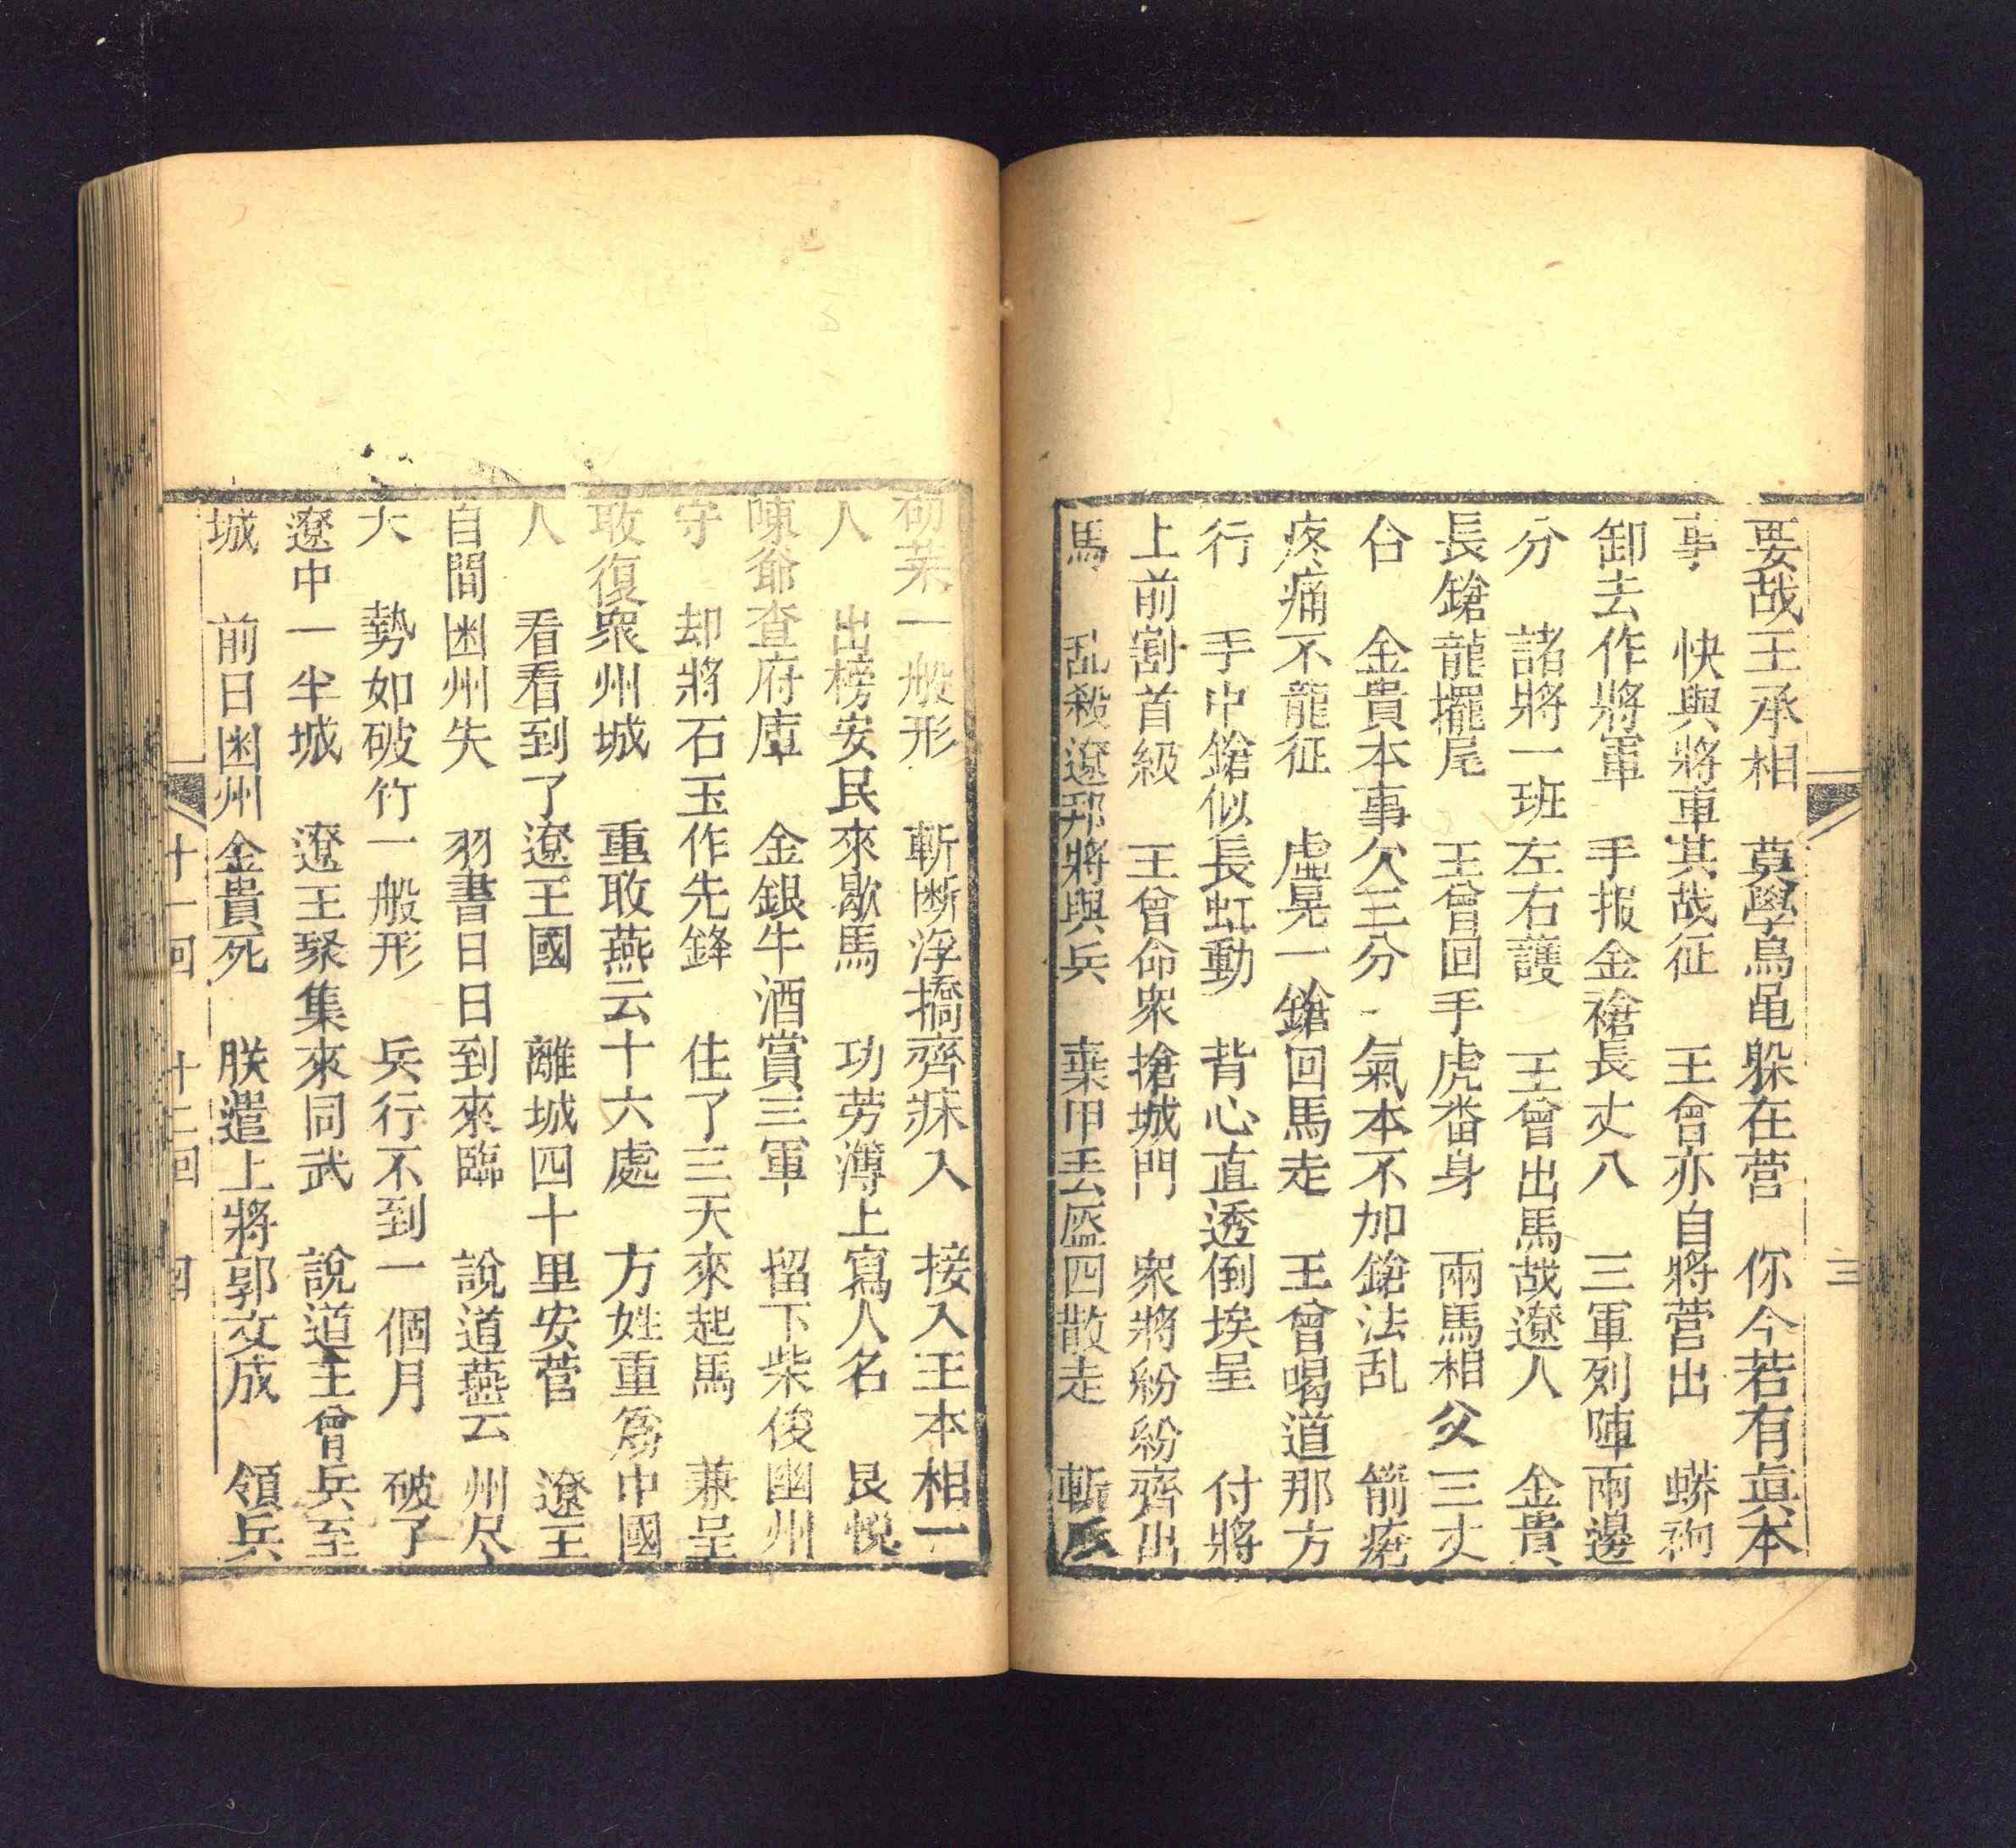 要哉王承相　莫學烏龟躲在营　你今若有真本
事　快與將車其哉征　王會亦自將营出　蟒袍
卸去作將軍　手报金𥚃長丈八　三軍列陣兩邊
分　諸將一班左右護　王曾出馬哉遼人　金貴
長鎗龍擺尾　王曾回手虎畨身　兩馬相父三丈
合　金貴本事欠三分　氣本不加鎗法乱　箭瘡
疼痛不龍征　虚晃一鎗回馬走　王曾喝道那方
行　手中鎗似長虹動　背心直透倒埃呈　付將
上前割首級　王曾命衆搶城門　衆將紛紛齊出
馬　乱殺遼邦將與兵　棄甲丢盔四散走　斬
一般形　斬断浮橋齊入　接入王本相一
人　出榜安民來歇馬　功劳薄上寫人名　艮悦
陳爺查府庫　金銀牛酒賞三軍　留下柴俊幽州
守　却將石玉作先鋒　住了三天來起馬　兼呈
敢復衆州城　重敢燕云十六處　方姓重爲中國
人　看看到了遼王國　離城四十里安营　遼王
自聞困州失　羽書日日到來臨　說道燕云州尽
大　勢如破竹一般形　兵行不到一個月　破了
遼中一半城　遼王聚集來同武　說道王曾兵至
城　前日困州金貴死　朕遣上將郭文成　領兵
十一回　十二回　四
三